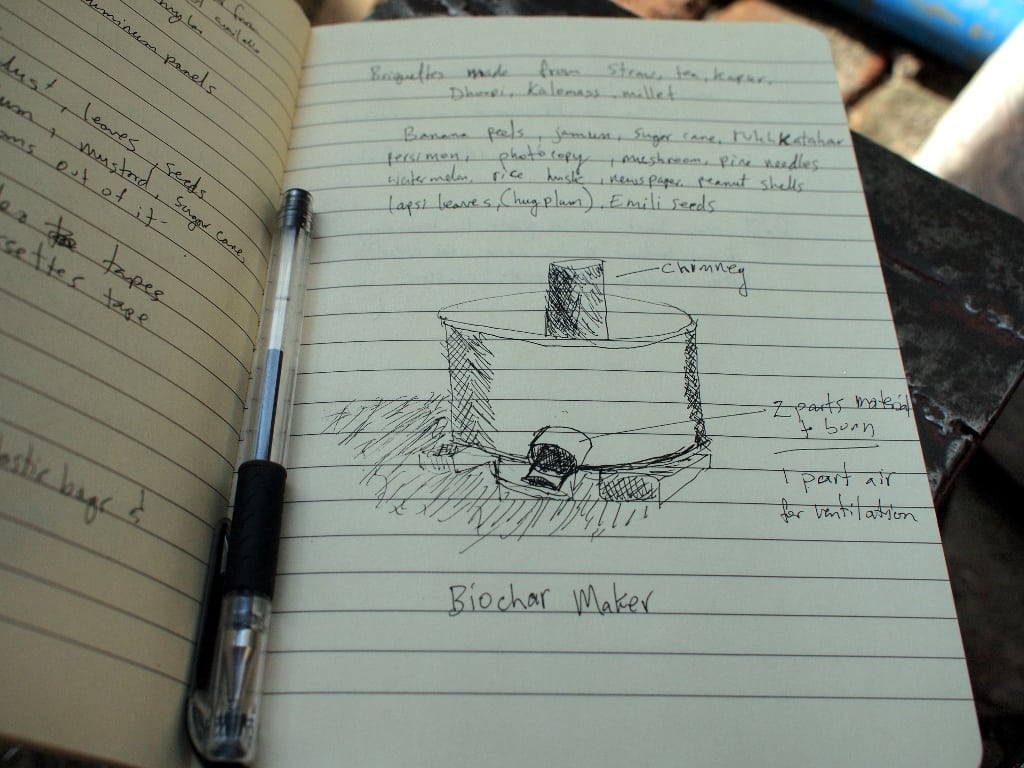 from
available
aluminum panels
dust, leaves, seeds
mustard, sugar cane,
out of it-
tapes
settes tape
plastic bags &
Briquettes made from straw, tea, kapur,
Dhoopi, Kalomass, millet
Banana peels, jamun, sugar cane, rukh katahar
persimon, photocopy, mushroom, pine needles
watermelon, rice husks, newspaper, peanut shells
lapsi leaves, (hugplum), Emili seeds
chimney
2 parts material
to burn
1 part air
for ventilation
Biochar Maker